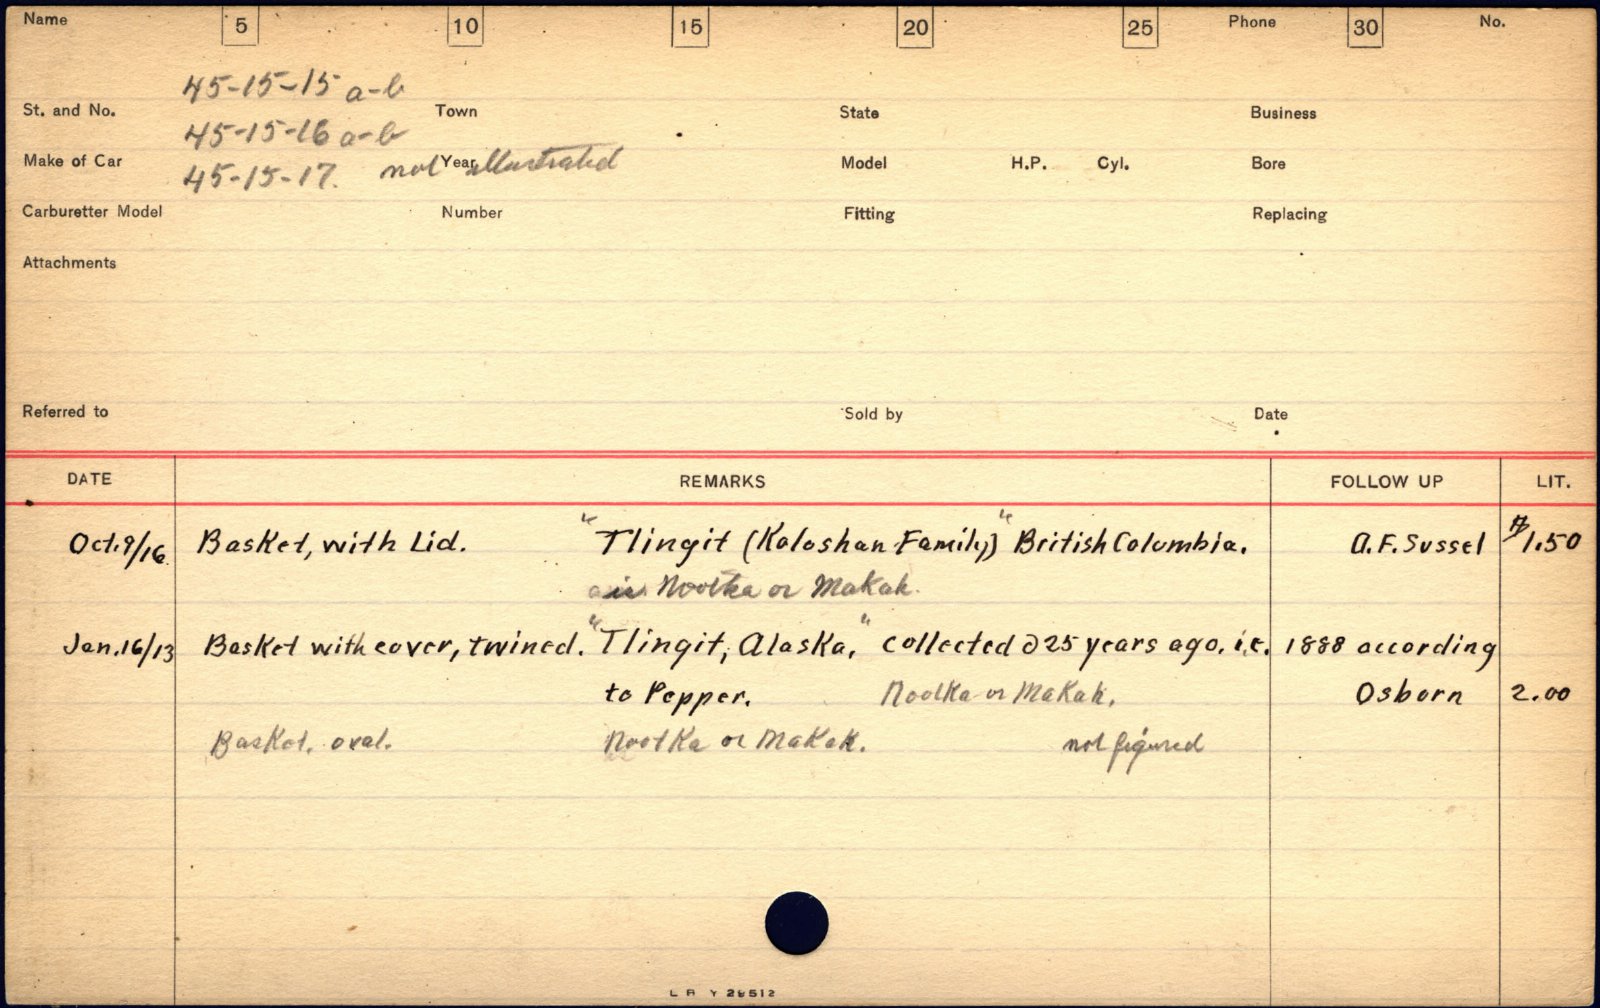 Name 5 10 15 20 25 Phone 30 No.
45-15-15 a-b
St. and No. Town State Business
45-15-16 a-b
Make of Car Year Model H.P. Cyl. Bore
45-15-17. not illustrated
Carburetter Model Number Fitting Replacing
Attachments
Referred to Sold by Date
DATE REMARKS FOLLOW UP LIT.
Oct.9/16 Basket, with Lid. "Tlingit (Koloshan Family)" British Columbia. A.F. Sussel $1.50
Nootka or Makah.
Jan.16/13 Basket with cover, twined. "Tlingit, Alaska," collected 25 years ago, i.e. 1888 according
to Pepper. Nootka or Makah. Osborn 2.00
Basket, oval. Nootka or Makah. not figured
L R Y 28512